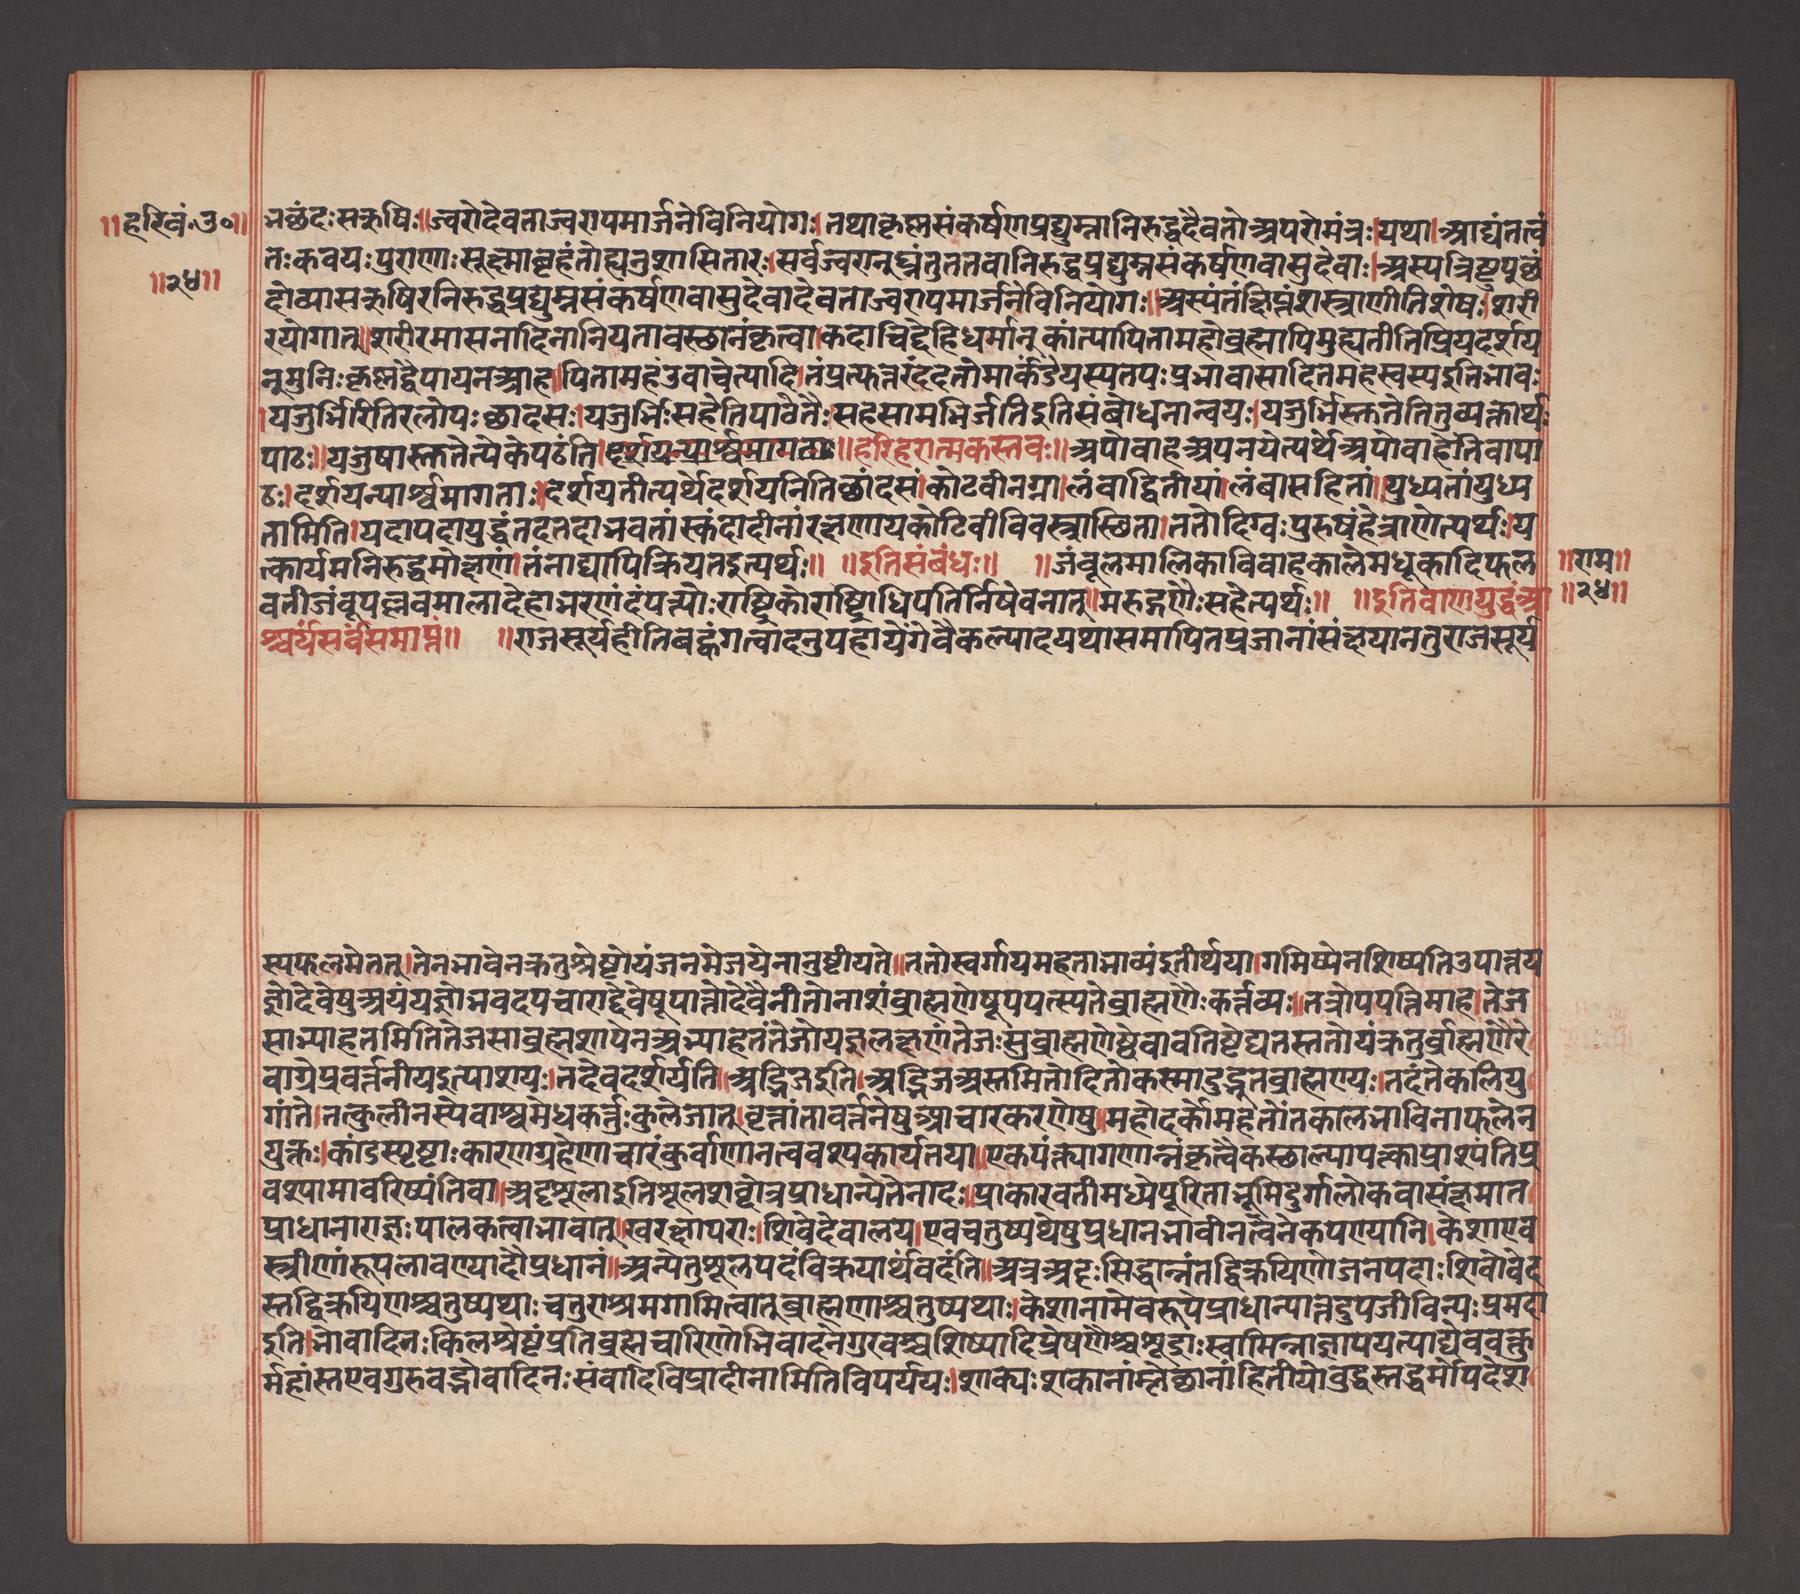 ॥हरिवं॰उ॰॥
॥२४॥
भछंदःसऋषिः॥ज्वरोदेवताज्वरापमार्जनेविनियोगः।तथाकृष्णसंकर्षणप्रद्युम्नानिरुद्धदैवतोअपरोमंत्रः।यथा।आद्यंतत्वं
तःकवयःपुराणाःसूक्ष्माबृहंतोह्यनुशासितारः।सर्वज्वरान्घ्नंतुततवानिरुद्धप्रद्युम्नसंकर्षणवासुदेवाः।अस्यत्रिष्टुप्छं
दोव्यासऋषिरनिरुद्धप्रद्युम्नसंकर्षणवासुदेवादेवताज्वरापमार्जनेविनियोगः॥अस्यंतंछिन्नंशस्त्राणीतिशेषः।शरी
रयोगात्॥शरीरमासनादिनानियतावस्छानंकृत्वा।कदाचिद्देहिधर्मान्कांत्यापितामहोब्रह्मापिमुह्यतीतिप्रियदर्शय
नुमुनिःकृष्णद्वैपायनआह॥पितामहंउवाचेत्यादि।तंप्रत्युत्तरंददतोमार्कंडेयस्यतपःप्रभावासादितमहस्वस्यइतिभावः
।यजुर्भिरितिरलोपःछांदसः।यजुर्भिःसहेतिपाठेतैः।सहसामभिर्जतिइतिसंबोधनान्वयः।यजुर्भिस्क्ततेतितुव्यक्तोर्थः
पाठः॥यजुषास्क्ततेत्येकेपठंति।॥हरिहरात्मकस्तवः॥अपोवाहअपनयेत्यर्थेअपोवाहेतिवापा
ठः।दर्शयन्पार्श्वमागता।दर्शयतीत्यर्थेदर्शयनितिछांदसं।कोटवीनग्ना।लंबाद्वितीयां।लंबासहितां।युध्यतांयुध्य
तामिति।यदायदायुद्धंतदतदाभवतांस्कंदादीनांरक्षणायकोटिवीविवस्त्रास्छिता।ततोदिग्वःपुरुषंहेत्राणेत्यर्थः।य
त्कार्यमनिरुद्धमोक्षणं।तंनाद्यापिक्रियतइत्यर्थः॥ ॥इतिसंबंधः॥ ॥जंबूलमालिकाविवाहकालेमधूकादिफल
॥राम॥
वतीजंबूपल्लवमालादेहाभरणंदंपत्योः।राष्ट्रिकोराष्ट्राधिपतिर्निषेवनात्॥मरुद्गणैःसहेत्यर्थः॥ ॥इतिबाणयुद्धंआ
॥२४॥
श्चर्यंसर्वंसमाप्तं॥ ॥राजसूर्यहीतिबह्वंगत्वादनुपहार्येगेवैकल्यादयथासमापितप्रजानांसंक्षयानतुराजसूर्य
स्यफलमेतत्।तेनभावेनक्रतुश्रेष्टोयंजनमेजयेनानुष्टीयते॥ततोस्वर्गायमहताभाव्यंइतीर्थयागमिष्येनशिष्यतिउपात्तय
ज्ञोदेवेषुअयंयज्ञोभवदपचाराद्देवेषूपात्तोदेवैनीतोनाशंब्राह्मणेषूपपत्स्यतेब्राह्मणैःकर्त्तव्यः॥तत्रोपपत्तिमाह।तेज
साभ्याहतमितितेजसाब्रह्मशापेनअभ्याहतंतेजोयज्ञलक्षणंतेजःसुब्राह्मणेष्वेवावतिष्टेद्यतस्ततोयंक्रतुर्ब्राह्मणैरे
वाग्रेप्रवर्त्तनीयइत्याशयः।तदेवदर्शयति॥अद्भिजइति।अद्भिजअस्तमितोदितोकस्माडुद्भुतब्राह्मणस्यः।तदंतेकलियु
गांते।तत्कुलीनस्येवाश्वमेधकर्तुःकुलेजात्।वृत्तांतावर्त्तनेषुआचारकरणेषु॥महोदर्कोमहतोंतकालभाविनाफलेन
युक्तः।कांडस्पृष्टाःकारणग्रहेणाचारंकुर्वाणानत्ववश्यकार्यतया॥एकपंक्त्यागणान्नंकृत्वैकस्छाल्यापत्काप्राश्यंतिप्र
वश्यामावरिष्यंतिवा॥अदृशूलाइतिशूलशब्दोत्रप्राधान्येतेनादः॥प्राकारवतीमध्येपूरिताभूमिदुर्गालोकवासंक्षमात
प्राधानाराज्ञःपालकत्वाभावात्।स्वरक्षापराः।शिवेदेवालय।एवचतुष्पथेषुप्रधानभावीनत्वैनेकपण्यानि।केशाएव
स्त्रीणांरूपलावण्यादौप्रधानं॥अन्येतुशूलपदंविक्रयार्थंवदंति॥अत्रअट्टःसिद्धान्नंतद्विक्रयिणोजनपदाः।शिवोवेद
स्तद्विक्रयिणश्चतुष्पथाःचतुराश्रमगामित्वात्ब्राह्मणाश्चतुष्पथाः।केशानामेवरूपेप्राधान्यात्तेदुपजीविन्यःप्रमदा
इति।भोवादिनःकिलश्रेष्टंप्रतिब्रह्मचारिणोभिवादनेगुरवश्चशिष्यादिप्रेषणैश्चशूद्राःस्वामिन्नाज्ञापयत्याद्येववक्तु
र्महांस्तएवगुरुवद्भोवादिनःसंवादिविप्रादीनामितिविपर्ययः।शाक्यःशकानांम्लेछानांहितीयोबुद्धस्तद्धर्मोपदेश